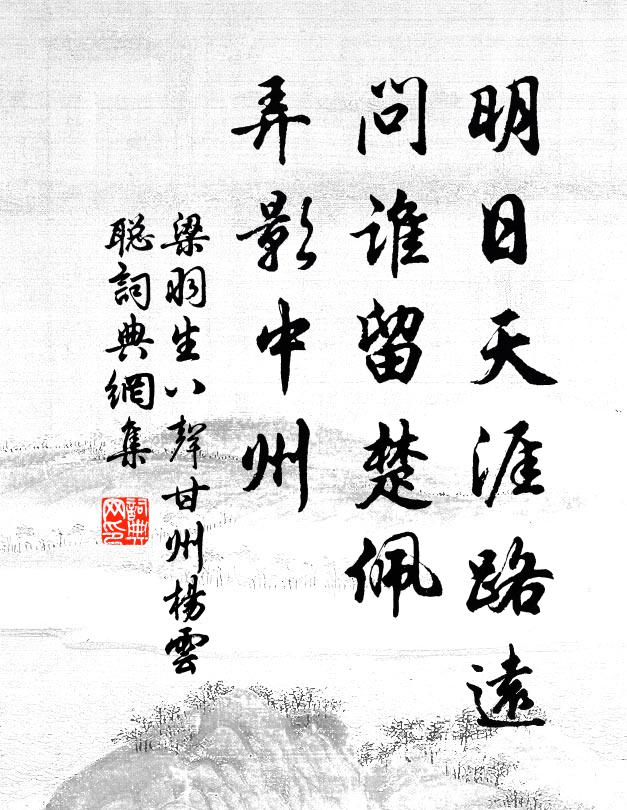 明日天涯路遠
問誰留楚佩
弄影中州
梁羽生八聲甘州楊雲
聰詞典網集
詞典
网印